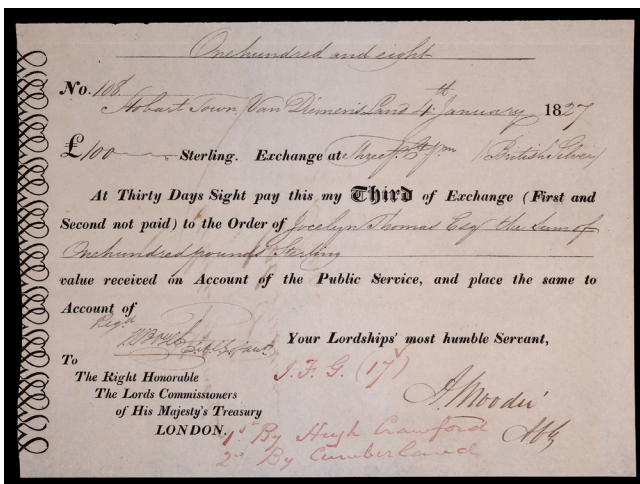 One hundred and eight
No. 108
Hobart Town Van Diemen's Land 4th January 1827
£100 Sterling. Exchange at Three P. Ct. Pm (British Silver)
At Thirty Days Sight pay this my Third of Exchange (First and
Second not paid) to the Order of Jocelyn Thomas Esq the Sum of
One hundred pounds Sterling
value received on Account of the Public Service, and place the same to
Account of
Regd
Your Lordships' most humble Servant,
To
The Right Honorable
The Lords Commissioners
of His Majesty's Treasury
LONDON.
J. F. G. (17)
A. Moodie
1st By Hugh Crawford
2nd By Cumberland